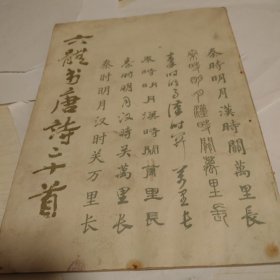 秦時明月漢時關萬里長
秦時明月漢時關萬里長
秦時明月漢時關萬里長
秦時明月漢時關萬里長
秦时明月漢时关萬里長
秦时明月汉时关万里长
六體书唐詩二十首